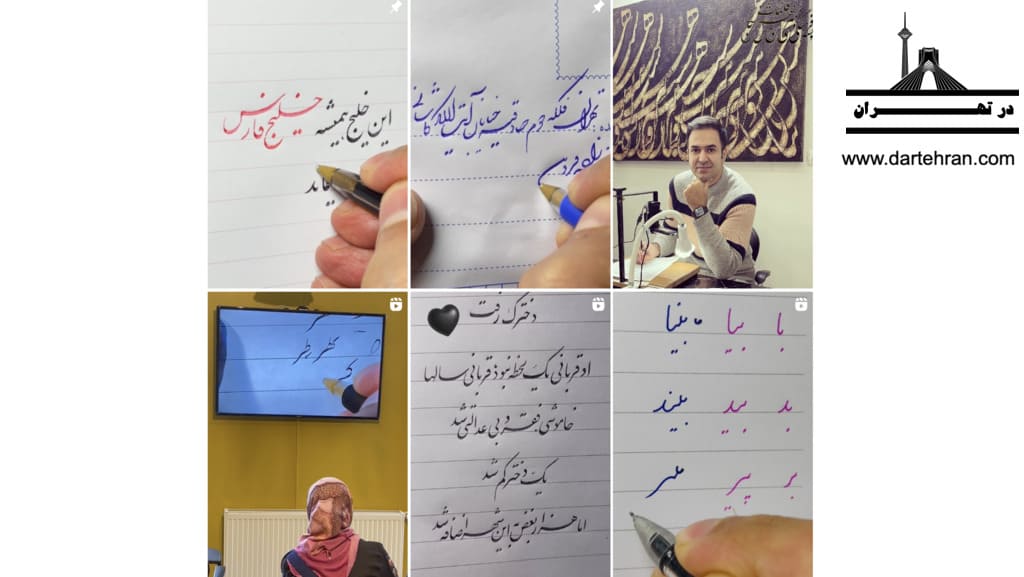 این خلیج همیشه خلیج فارس
تهران فلکه دوم صادقیه خیابان آیت الله کاشانی
در تهران
www.dartehran.com
دخترک رفت
او قربانی یک لحظه نبود قربانی سالها
خاموشی فقر و بی عدالتی شد
یک دختر کم شد
اما هزار بغض به این شهر اضافه شد
با بیا بلینا
بد بید بلیند
بر ببیر